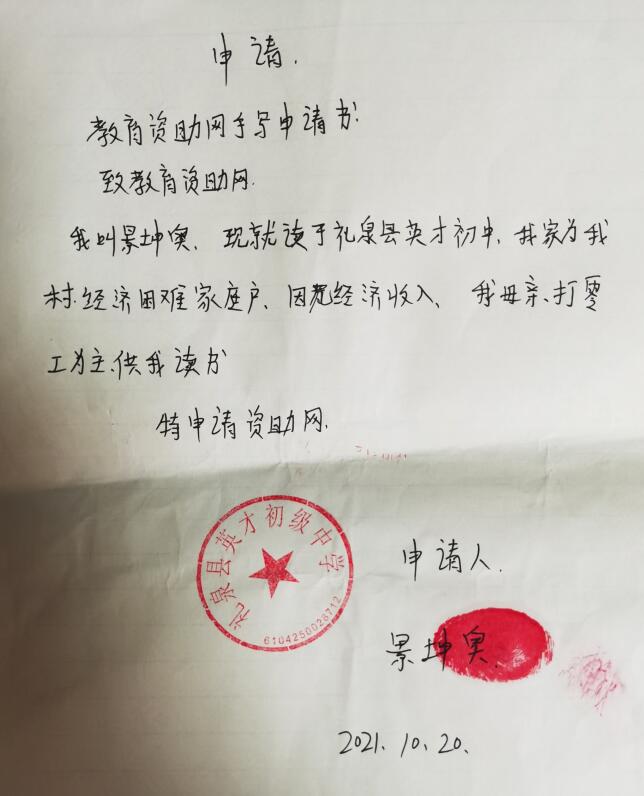 申请.
教育资助网手写申请书:
致教育资助网.
我叫景坤奥、现就读于礼泉县英才初中、我家为我
村.经济困难家庭户、因无经济收入、我母亲、打零
工为主、供我读书
特申请资助网.
礼泉县英才初级中学
6104250028712
申请人.
景坤奥.
2021.10.20.